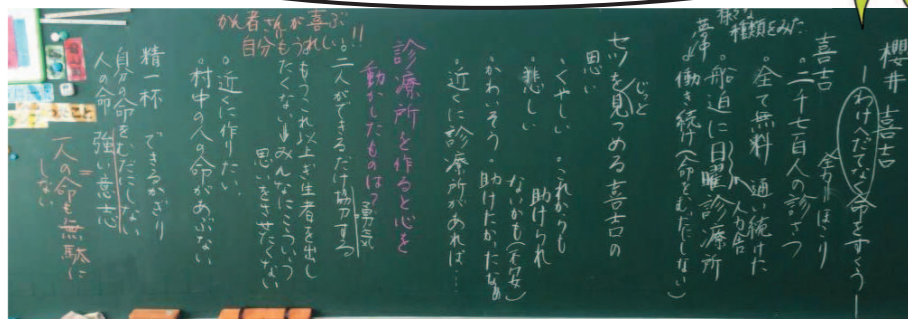 櫻井 喜吉
―わけへだてなく命をすくう―
様々な
種類をみた
喜吉
・二千七百人の診さつ
全力 ほこり
・全て無料 通い続けた
・船迫に日曜診療所
夢中
よ働き続け(命をむだにしない)
セツを見つめる喜吉の
じっと
思い
・くやしい ・これからも
助けられ
ないかも(不安)
・悲しい
・かわいそう・助けたかったなぁ
・近くに診療所があれば…
診療所を作ると心を
動かしたものは?
勇気
・二人ができるだけ協力する
・もうこれ以上ぎ生者を出し
たくない→みんなにこういう
思いをさせたくない
かん者さんが喜ぶ
自分もうれしい!!
・近くに作りたい
・村中の人の命があぶない
精一杯 できるかぎり
自分の命をむだにしない
人の命 強い意志
一人の命も無駄に
しない